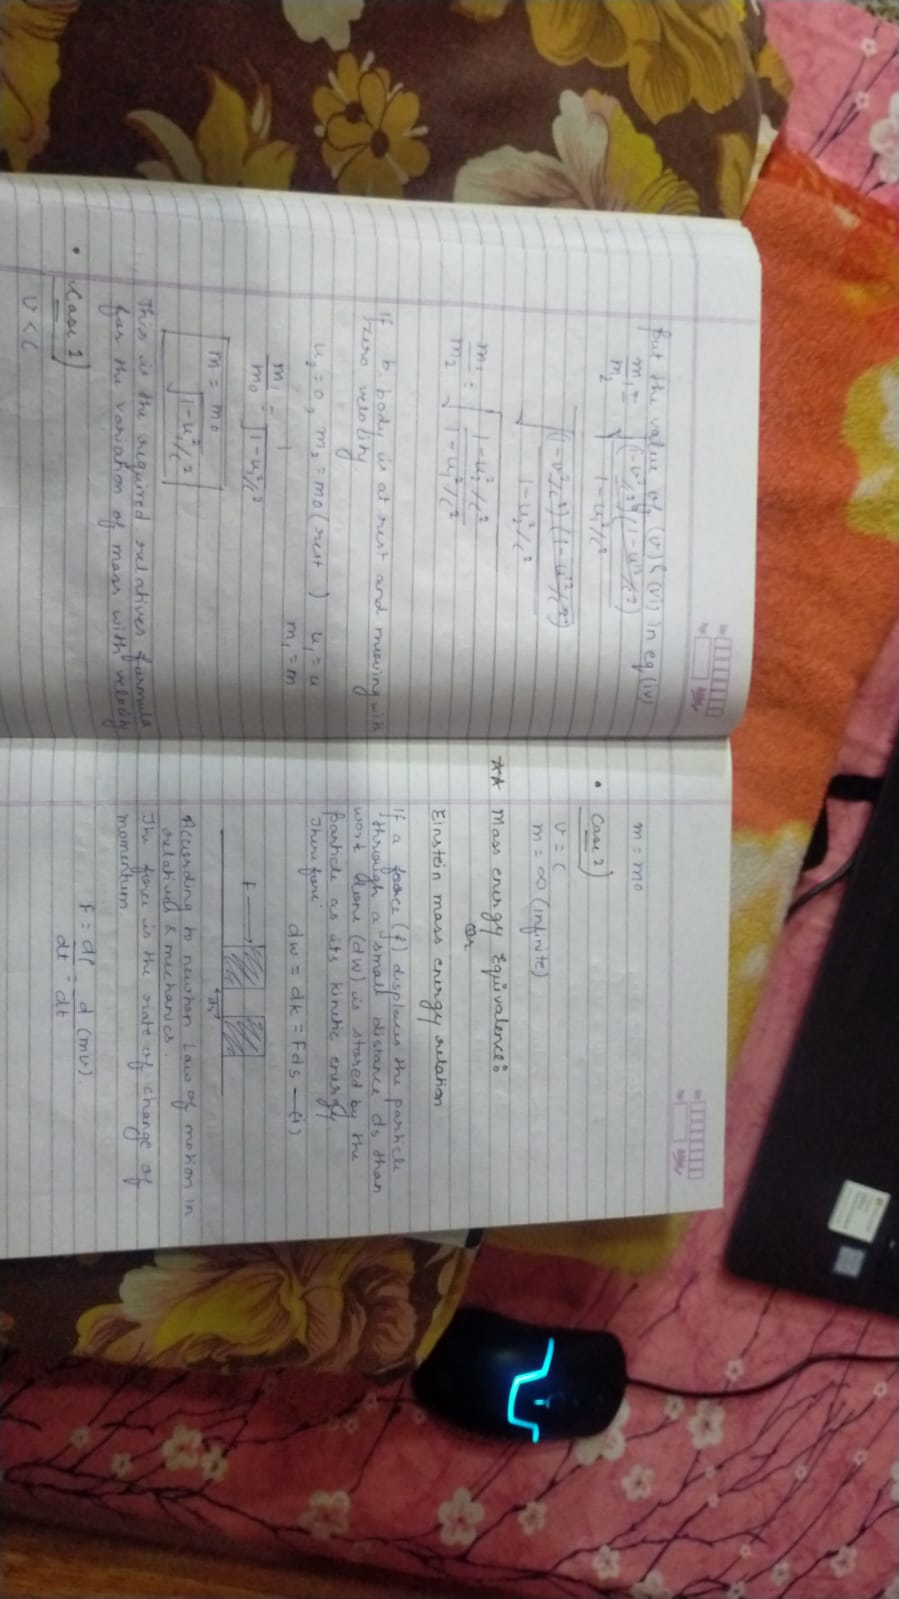 Put the value of (v) & (vi) in eq (iv)
m₁/m₂ = √((1-v²/c²)(1-u²/c²) / 1-u₁²/c²)
√((1-v²/c²)(1-u²/c²) / 1-u₁²/c²)
m₁/m₂ = √(1-u₂²/c² / 1-u₁²/c²)
If b body is at rest and moving with
zero velocity
u₂ = 0, m₂ = m0 (rest) u₁ = u
m₁ = m
m₁/m0 = 1/√(1-u₁²/c²)
m = m0/√(1-u²/c²)
This is the required relatives formula
for the variation of mass with velocity
• Case 1)
v < c
m = m0
• Case 2)
v = c
m = ∞ (infinite)
** Mass energy Equivalence:
or
Einstein mass energy relation
If a force (f) displaces the particle
through a small distance ds than
work done (dw) is stored by the
particle as its kinetic energy
Therefore
dw = dk = Fds — (1)
F
According to newton Law of motion in
mechanics.
The force is the rate of change of
momentum
F = dp/dt = d/dt (mv)